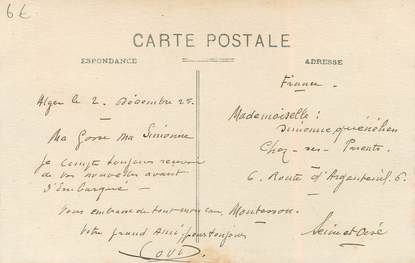 6€
CARTE POSTALE
ESPONDANCE
ADRESSE
France
Alger le 2. Décembre 25.
Mademoiselle:
Simonne
Ma Gosse Ma Simonne
Chez ses Parents.
Je compte toujours recevoir
de vos nouvelles avant
6. Route d'Argenteuil. 6.
d'Embarqué —
Vous embrasse de tout mon cœur,
Montesson.
Votre grand Ami pour toujours
Seine et Oise